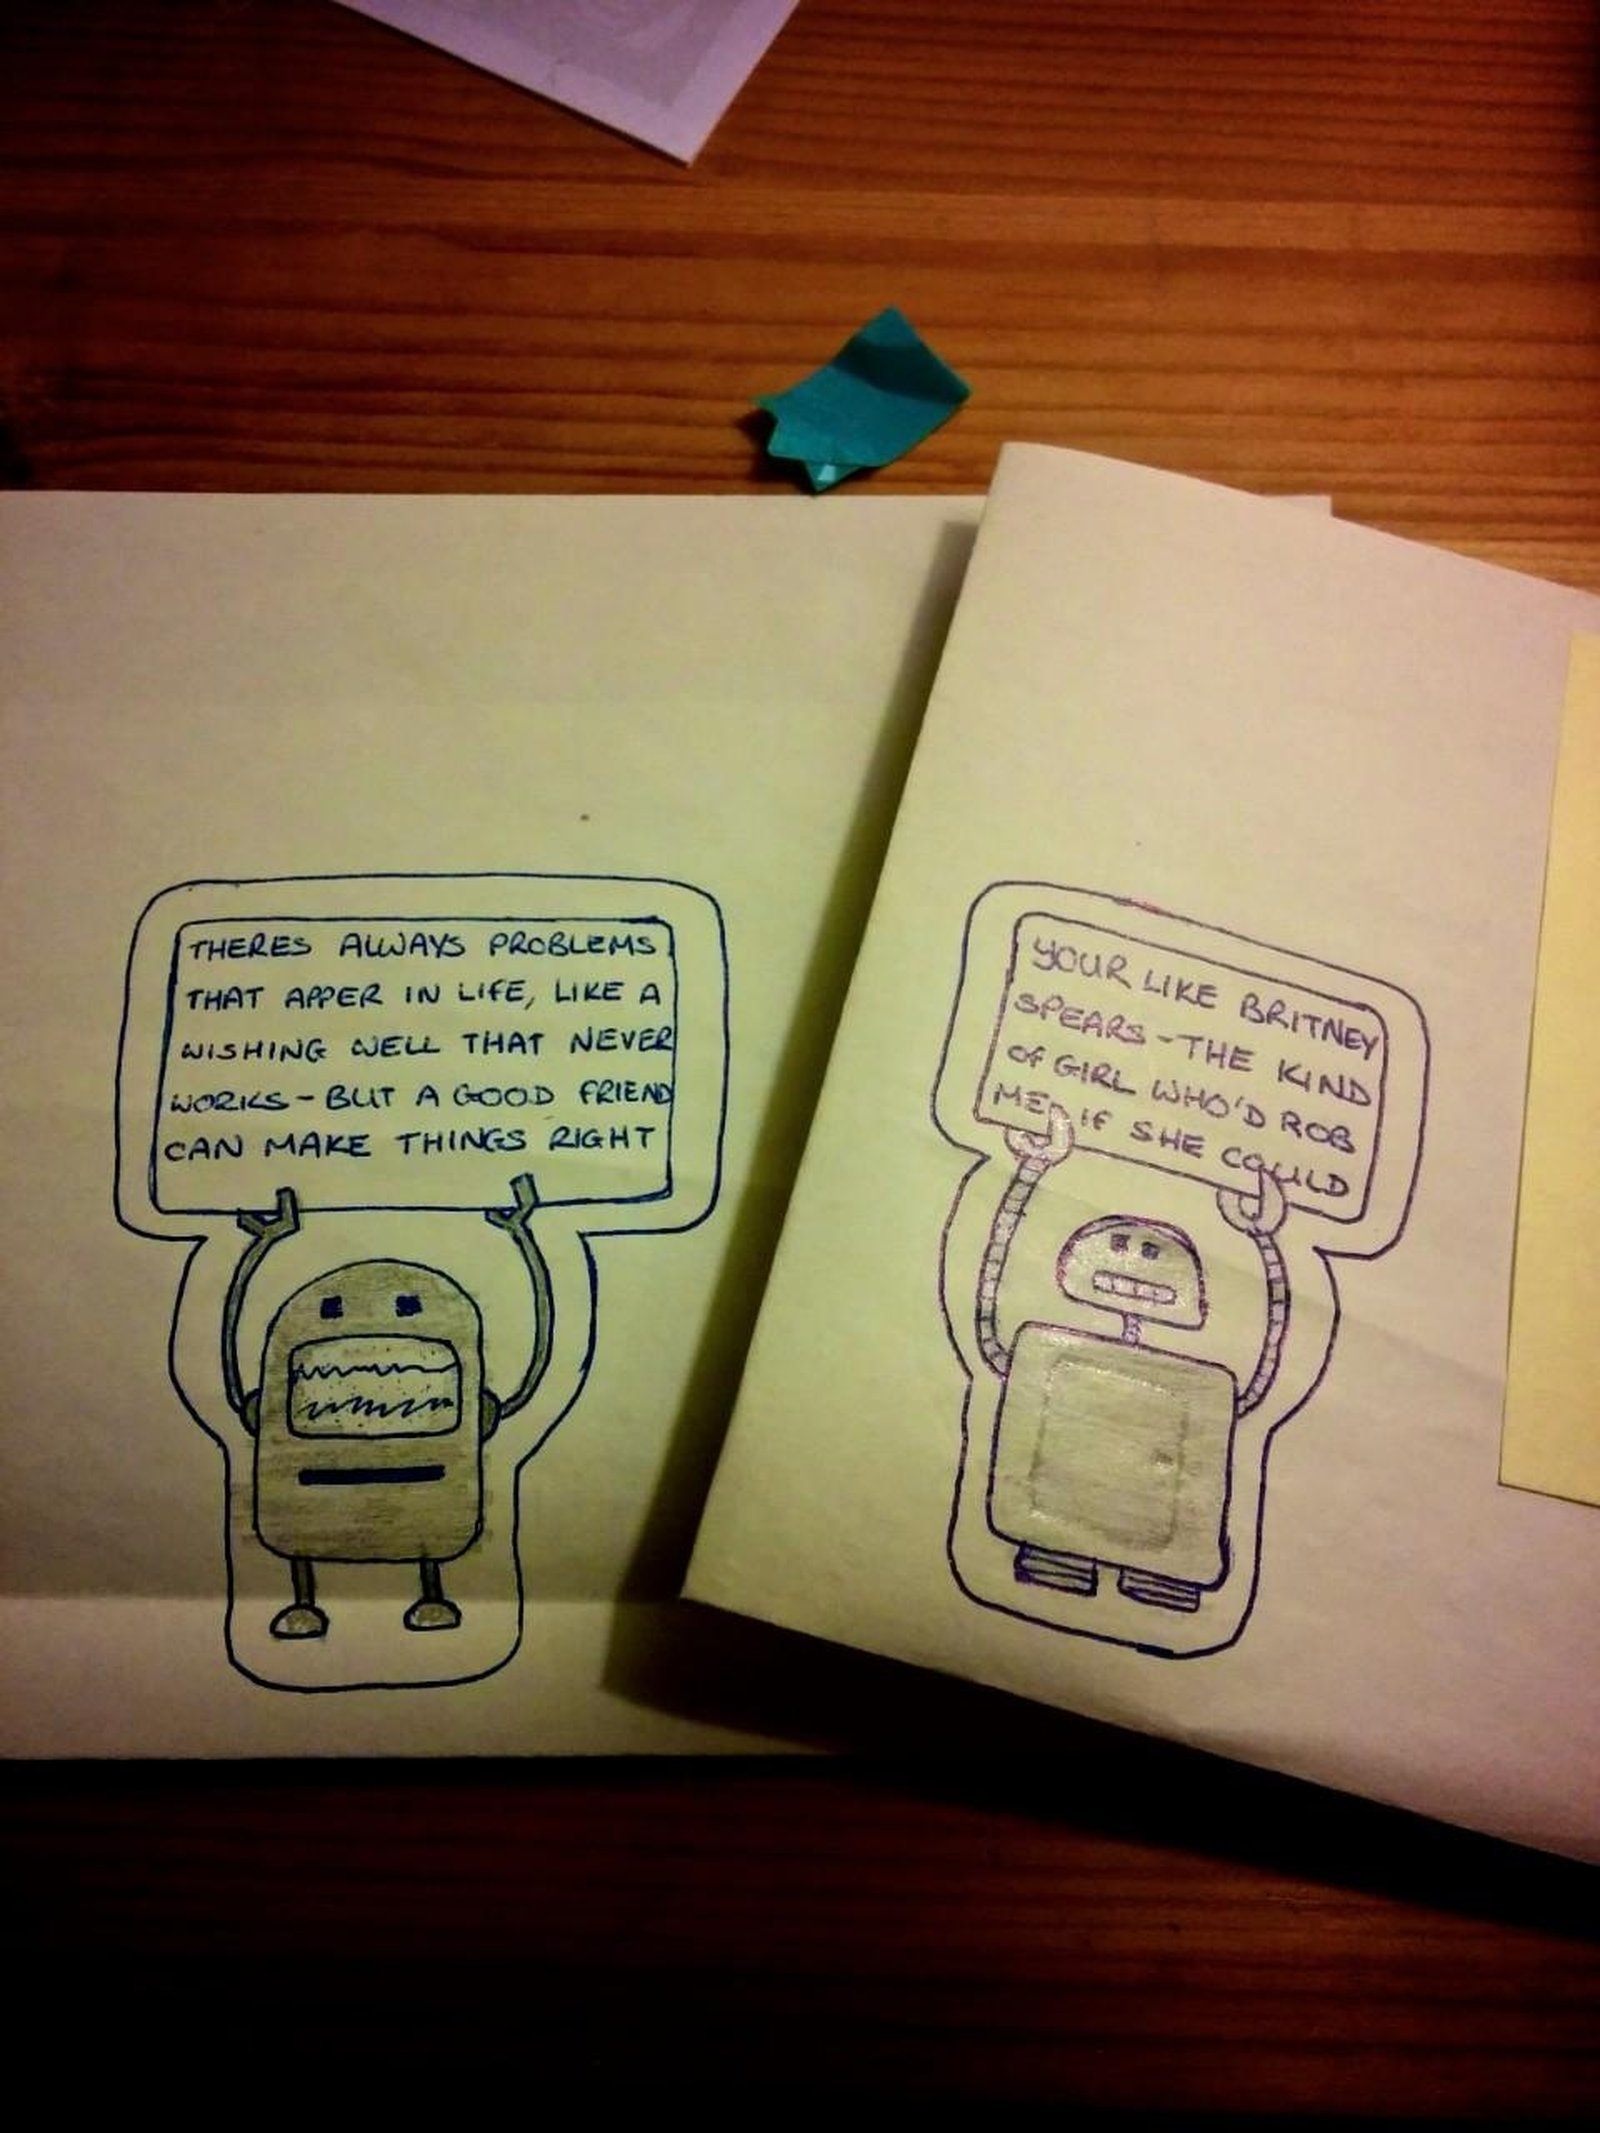 THERES ALWAYS PROBLEMS
THAT APPER IN LIFE, LIKE A
WISHING WELL THAT NEVER
WORKS - BUT A GOOD FRIEND
CAN MAKE THINGS RIGHT
YOUR LIKE BRITNEY
SPEARS - THE KIND
OF GIRL WHO'D ROB
ME, IF SHE COULD